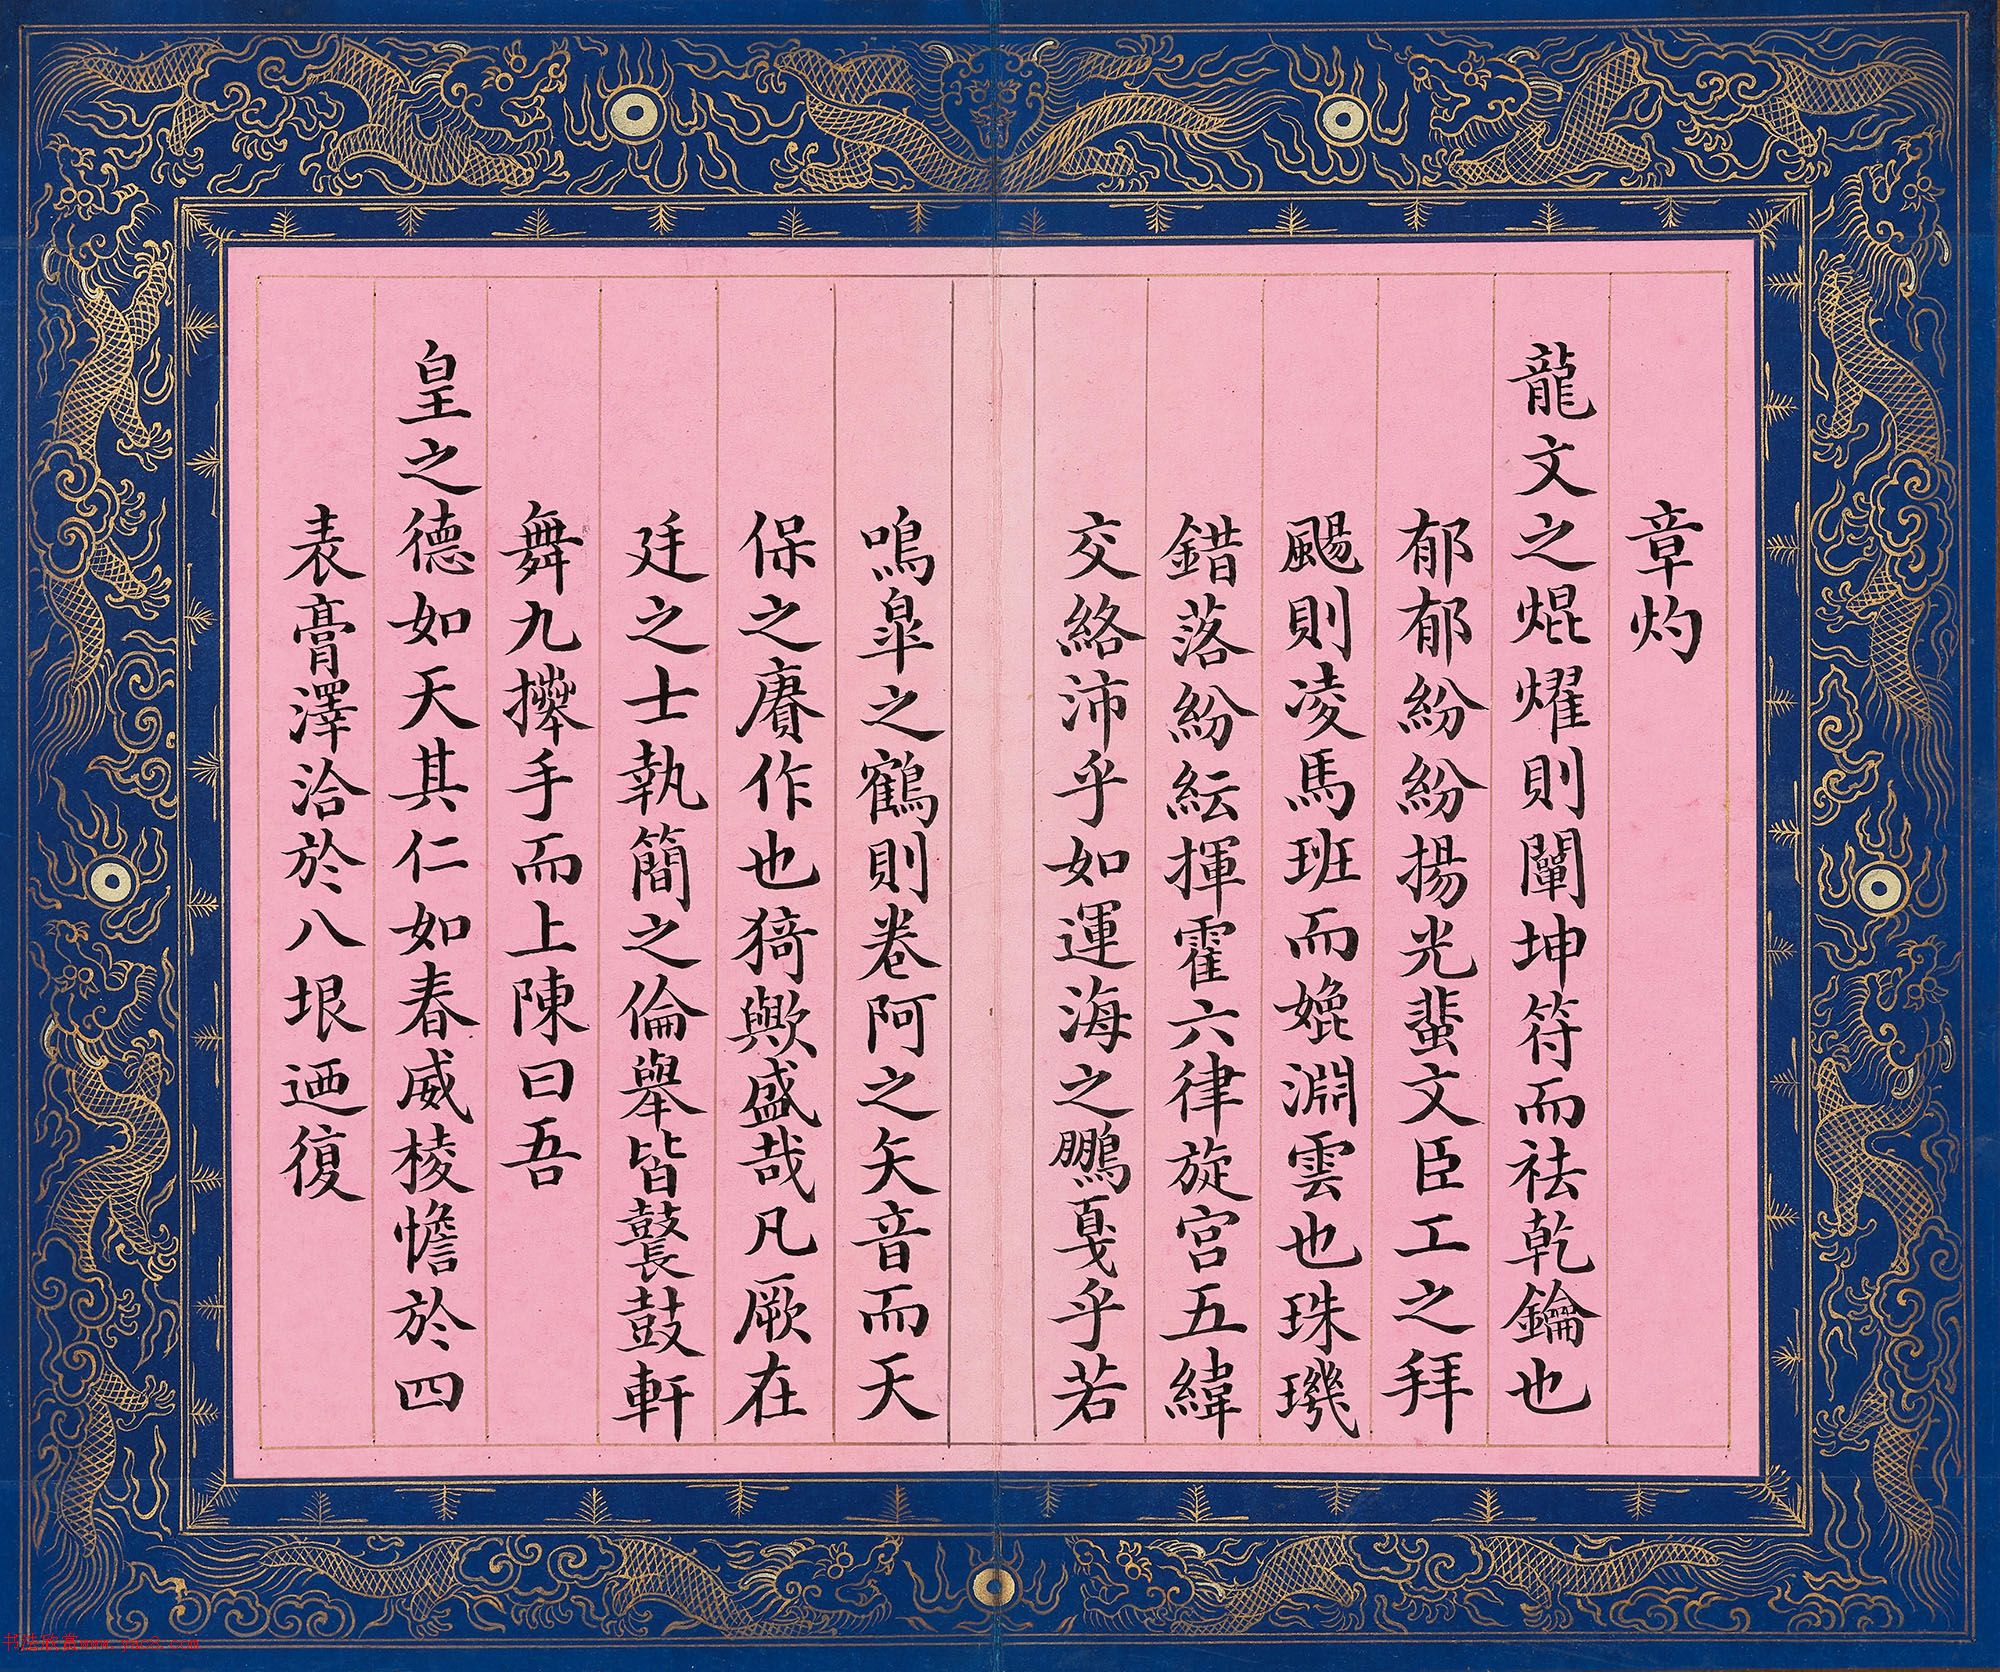 章灼
龍文之焜燿則闡坤符而袪乾鑰也
郁郁紛紛揚光蜚文臣工之拜
颺則凌馬班而嬎淵雲也珠璣
錯落紛紜揮霍六律旋宮五緯
交絡沛乎如運海之鵬戛乎若
鳴臯之鶴則卷阿之矢音而天
保之賡作也猗歟盛哉凡厥在
廷之士執簡之倫舉皆鼚鼓軒
舞九擽手而上陳曰吾
皇之德如天其仁如春威棱憺於四
表膏澤洽於八垠迺復
书法欣赏www.yac8.com